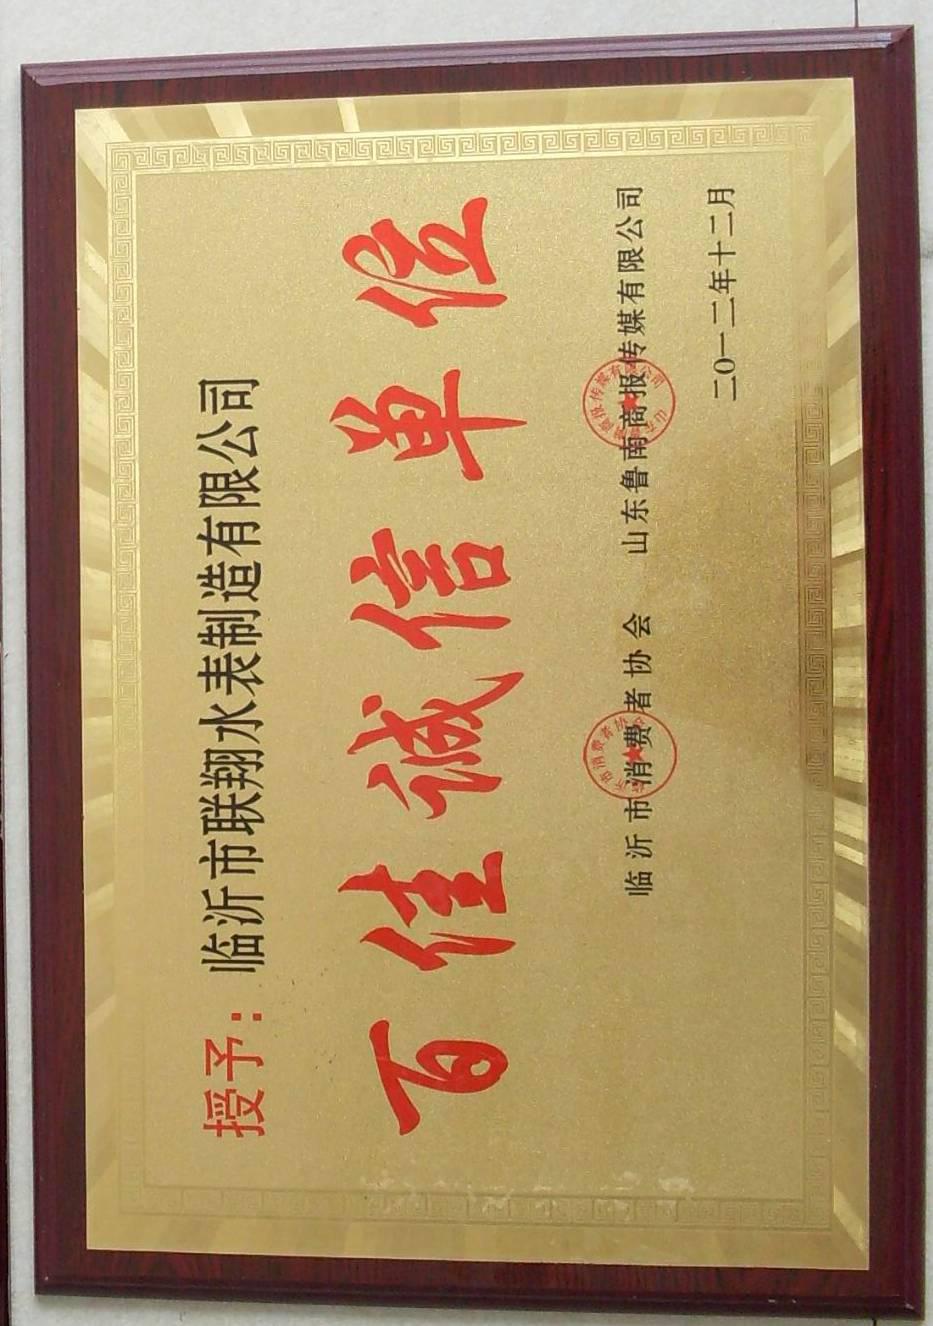 授予：临沂市联翔水表制造有限公司
百佳诚信单位
临沂市消费者协会 山东鲁南商报传媒有限公司
二〇一二年十二月